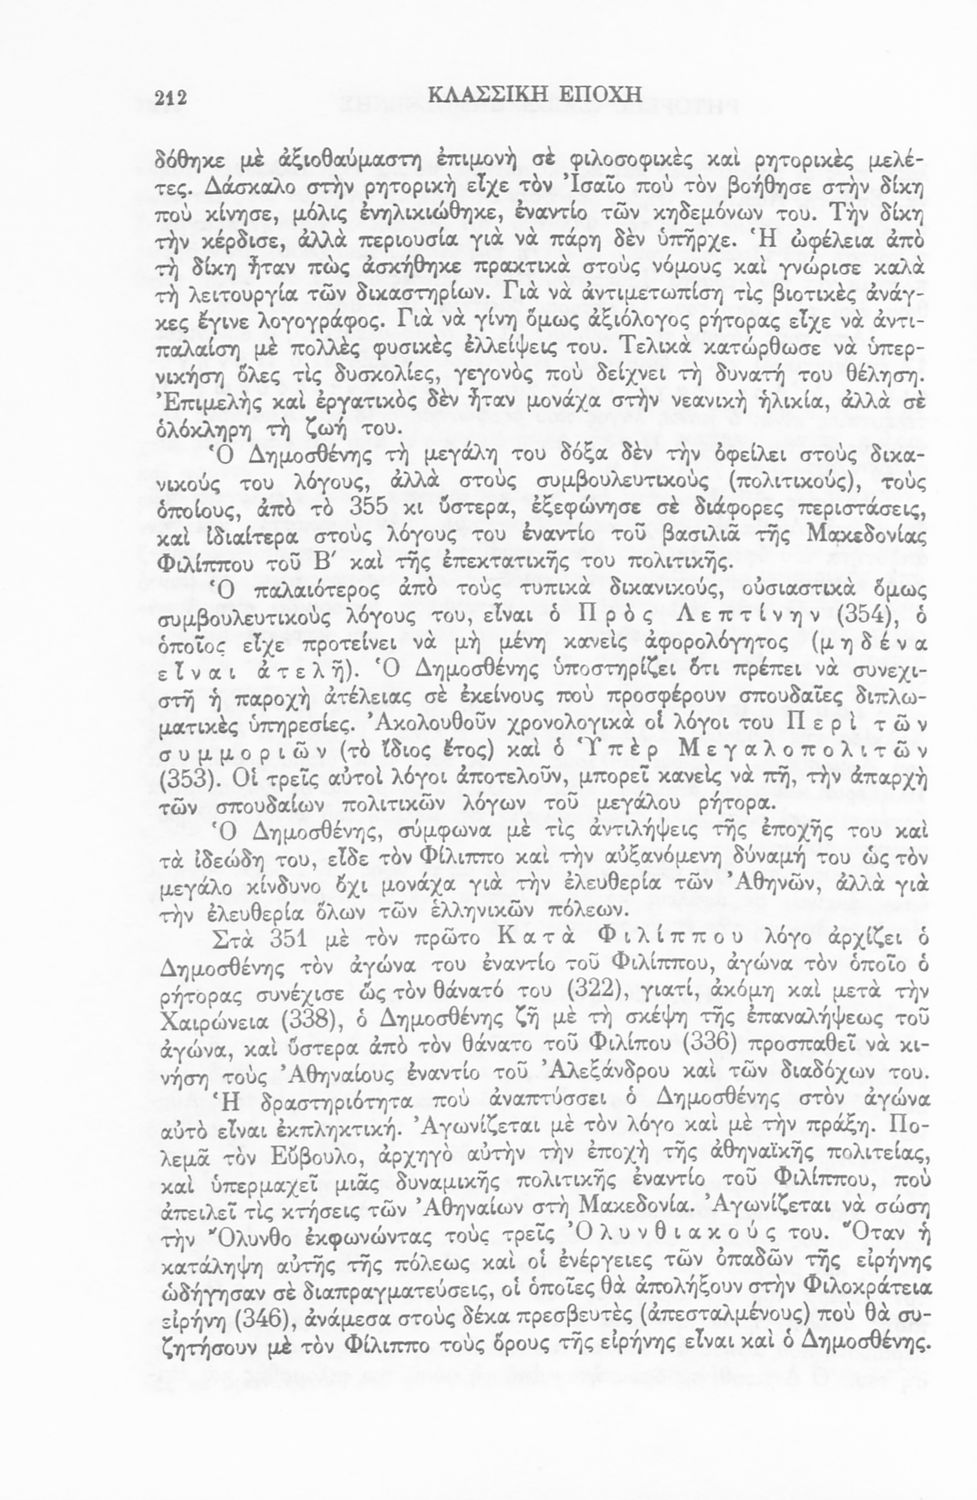 212
ΚΛΑΣΣΙΚΗ ΕΠΟΧΗ
δόθηκε μὲ ἀξιοθαύμαστη ἐπιμονὴ σὲ φιλοσοφικὲς καὶ ρητορικὲς μελέ-
τες. Δάσκαλο στὴν ρητορικὴ εἶχε τὸν Ἰσαῖο ποὺ τὸν βοήθησε στὴν δίκη
ποὺ κίνησε, μόλις ἐνηλικιώθηκε, ἐναντίο τῶν κηδεμόνων του. Τὴν δίκη
τὴν κέρδισε, ἀλλὰ περιουσία γιὰ νὰ πάρη δὲν ὑπῆρχε. Ἡ ὠφέλεια ἀπὸ
τὴ δίκη ἦταν πὼς ἀσκήθηκε πρακτικὰ στοὺς νόμους καὶ γνώρισε καλὰ
τὴ λειτουργία τῶν δικαστηρίων. Γιὰ νὰ ἀντιμετωπίση τὶς βιοτικὲς ἀνάγ-
κες ἔγινε λογογράφος. Γιὰ νὰ γίνη ὅμως ἀξιόλογος ρήτορας εἶχε νὰ ἀντι-
παλαίση μὲ πολλὲς φυσικὲς ἐλλείψεις του. Τελικὰ κατώρθωσε νὰ ὑπερ-
νικήση ὅλες τὶς δυσκολίες, γεγονὸς ποὺ δείχνει τὴ δυνατή του θέληση.
Ἐπιμελὴς καὶ ἐργατικὸς δὲν ἦταν μονάχα στὴν νεανικὴ ἡλικία, ἀλλὰ σὲ
ὁλόκληρη τὴ ζωή του.
Ὁ Δημοσθένης τὴ μεγάλη του δόξα δὲν τὴν ὀφείλει στοὺς δικα-
νικούς του λόγους, ἀλλὰ στοὺς συμβουλευτικοὺς (πολιτικούς), τοὺς
ὁποίους, ἀπὸ τὸ 355 κι ὕστερα, ἐξεφώνησε σὲ διάφορες περιστάσεις,
καὶ ἰδιαίτερα στοὺς λόγους του ἐναντίο τοῦ βασιλιᾶ τῆς Μακεδονίας
Φιλίππου τοῦ Β′ καὶ τῆς ἐπεκτατικῆς του πολιτικῆς.
Ὁ παλαιότερος ἀπὸ τοὺς τυπικὰ δικανικούς, οὐσιαστικὰ ὅμως
συμβουλευτικοὺς λόγους του, εἶναι ὁ Πρὸς Λεπτίνην (354), ὁ
ὁποῖος εἶχε προτείνει νὰ μὴ μένη κανεὶς ἀφορολόγητος (μηδένα
εἶναι ἀτελῆ). Ὁ Δημοσθένης ὑποστηρίζει ὅτι πρέπει νὰ συνεχι-
στῆ ἡ παροχὴ ἀτέλειας σὲ ἐκείνους ποὺ προσφέρουν σπουδαῖες διπλω-
ματικὲς ὑπηρεσίες. Ἀκολουθοῦν χρονολογικὰ οἱ λόγοι του Περὶ τῶν
συμμοριῶν (τὸ ἴδιος ἔτος) καὶ ὁ Ὑπὲρ Μεγαλοπολιτῶν
(353). Οἱ τρεῖς αὐτοὶ λόγοι ἀποτελοῦν, μπορεῖ κανεὶς νὰ πῆ, τὴν ἀπαρχὴ
τῶν σπουδαίων πολιτικῶν λόγων τοῦ μεγάλου ρήτορα.
Ὁ Δημοσθένης, σύμφωνα μὲ τὶς ἀντιλήψεις τῆς ἐποχῆς του καὶ
τὰ ἰδεώδη του, εἶδε τὸν Φίλιππο καὶ τὴν αὐξανόμενη δύναμή του ὡς τὸν
μεγάλο κίνδυνο ὄχι μονάχα γιὰ τὴν ἐλευθερία τῶν Ἀθηνῶν, ἀλλὰ γιὰ
τὴν ἐλευθερία ὅλων τῶν ἑλληνικῶν πόλεων.
Στὰ 351 μὲ τὸν πρῶτο Κατὰ Φιλίππου λόγο ἀρχίζει ὁ
Δημοσθένης τὸν ἀγώνα του ἐναντίο τοῦ Φιλίππου, ἀγώνα τὸν ὁποῖο ὁ
ρήτορας συνέχισε ὣς τὸν θάνατό του (322), γιατί, ἀκόμη καὶ μετὰ τὴν
Χαιρώνεια (338), ὁ Δημοσθένης ζῆ μὲ τὴ σκέψη τῆς ἐπαναλήψεως τοῦ
ἀγώνα, καὶ ὕστερα ἀπὸ τὸν θάνατο τοῦ Φιλίπου (336) προσπαθεῖ νὰ κι-
νήση τοὺς Ἀθηναίους ἐναντίο τοῦ Ἀλεξάνδρου καὶ τῶν διαδόχων του.
Ἡ δραστηριότητα ποὺ ἀναπτύσσει ὁ Δημοσθένης στὸν ἀγώνα
αὐτὸ εἶναι ἐκπληκτική. Ἀγωνίζεται μὲ τὸν λόγο καὶ μὲ τὴν πράξη. Πο-
λεμᾶ τὸν Εὔβουλο, ἀρχηγὸ αὐτὴν τὴν ἐποχὴ τῆς ἀθηναϊκῆς πολιτείας,
καὶ ὑπερμαχεῖ μιᾶς δυναμικῆς πολιτικῆς ἐναντίο τοῦ Φιλίππου, ποὺ
ἀπειλεῖ τὶς κτήσεις τῶν Ἀθηναίων στὴ Μακεδονία. Ἀγωνίζεται νὰ σώση
τὴν Ὄλυνθο ἐκφωνώντας τοὺς τρεῖς Ὀλυνθιακούς του. Ὅταν ἡ
κατάληψη αὐτῆς τῆς πόλεως καὶ οἱ ἐνέργειες τῶν ὀπαδῶν τῆς εἰρήνης
ὡδήγησαν σὲ διαπραγματεύσεις, οἱ ὁποῖες θὰ ἀπολήξουν στὴν Φιλοκράτεια
εἰρήνη (346), ἀνάμεσα στοὺς δέκα πρεσβευτὲς (ἀπεσταλμένους) ποὺ θὰ συ-
ζητήσουν μὲ τὸν Φίλιππο τοὺς ὅρους τῆς εἰρήνης εἶναι καὶ ὁ Δημοσθένης.